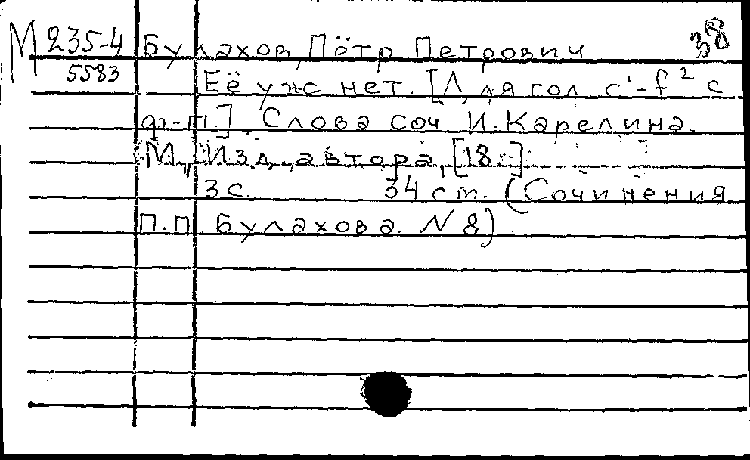 М 235-4 Булахов, Пётр Петрович 38
5583 Её уж нет. [Для гол. c¹-f² с
ф-п.]. Слова соч. И. Карелина.
М., Изд. автора, [18
3 с. 34 ст. (Сочинения
П.П. Булахова. N 8)